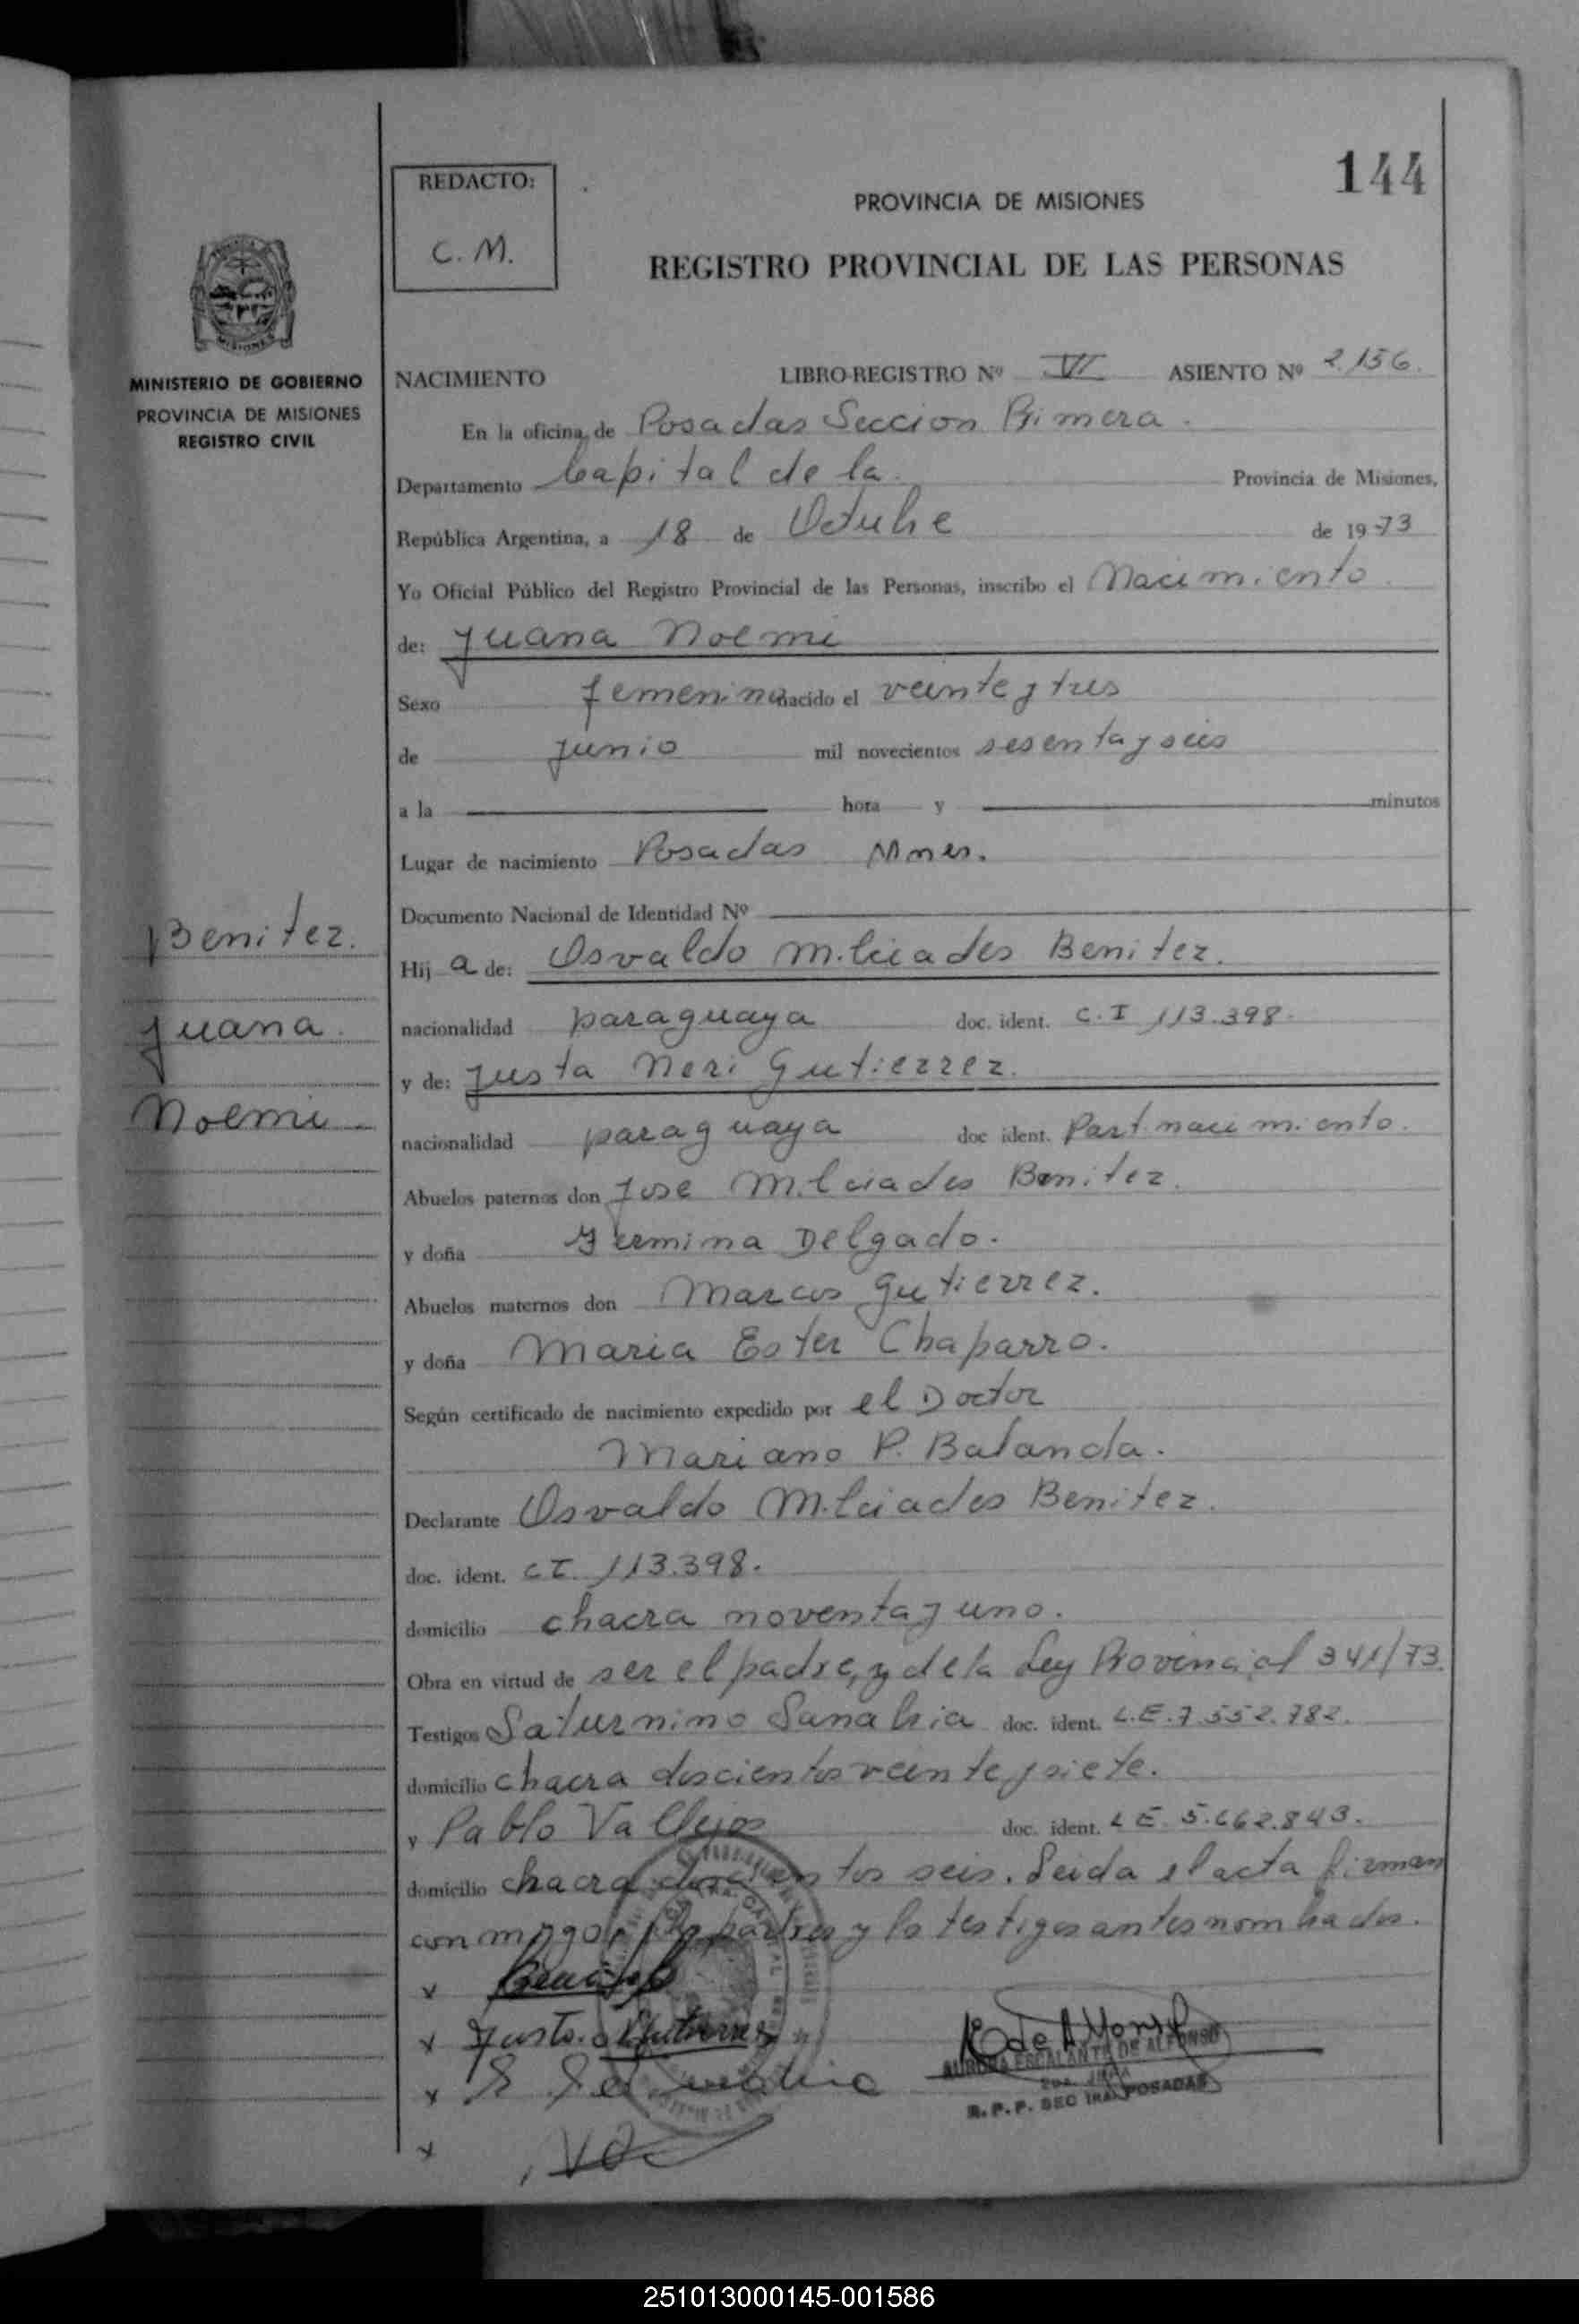 144
REDACTO:
C. M.
PROVINCIA DE MISIONES
REGISTRO PROVINCIAL DE LAS PERSONAS
MINISTERIO DE GOBIERNO
PROVINCIA DE MISIONES
REGISTRO CIVIL
NACIMIENTO LIBRO-REGISTRO Nº VI ASIENTO Nº 2.156.
En la oficina de Posadas Seccion Primera.
Departamento Capital de la Provincia de Misiones,
República Argentina, a 18 de Octubre de 1973
Yo Oficial Público del Registro Provincial de las Personas, inscribo el Nacimiento
de: Juana Noemi
Sexo femenino nacido el veinte y tres
de junio mil novecientos sesenta y seis
a la hora y minutos
Lugar de nacimiento Posadas Mnes.
Documento Nacional de Identidad Nº
Benitez.
Juana
Noemi
Hij a de: Osvaldo Milciades Benitez.
nacionalidad paraguaya doc. ident. C. I 113.398.
y de: Justa Neri Gutierrez.
nacionalidad paraguaya doc ident. Part. nacimiento.
Abuelos paternos don Jose Milciades Benitez.
y doña Delgado.
Abuelos maternos don Marcos Gutierrez.
y doña Maria Ester Chaparro.
Según certificado de nacimiento expedido por el Doctor
Mariano P. Balanda.
Declarante Osvaldo Milciades Benitez.
doc. ident. C I. 113.398.
domicilio chacra noventa y uno.
Obra en virtud de ser el padre, y de la Ley Provincial 341/73.
Testigos Saturnino Sanabria doc. ident. L.E. 7.552.782.
domicilio chacra doscientos veinte y siete.
y Pablo Vallejos doc. ident. L E. 5.662.843.
domicilio chacra doscientos seis. Leida el acta firman
conmigo los padres y los testigos antes nombrados.
x
x Justa Gutierrez
x S Sanabria
x
AURORA ESCALANTE DE ALFONSO
R. P. P. SEC 1RA. POSADAS
251013000145-001586